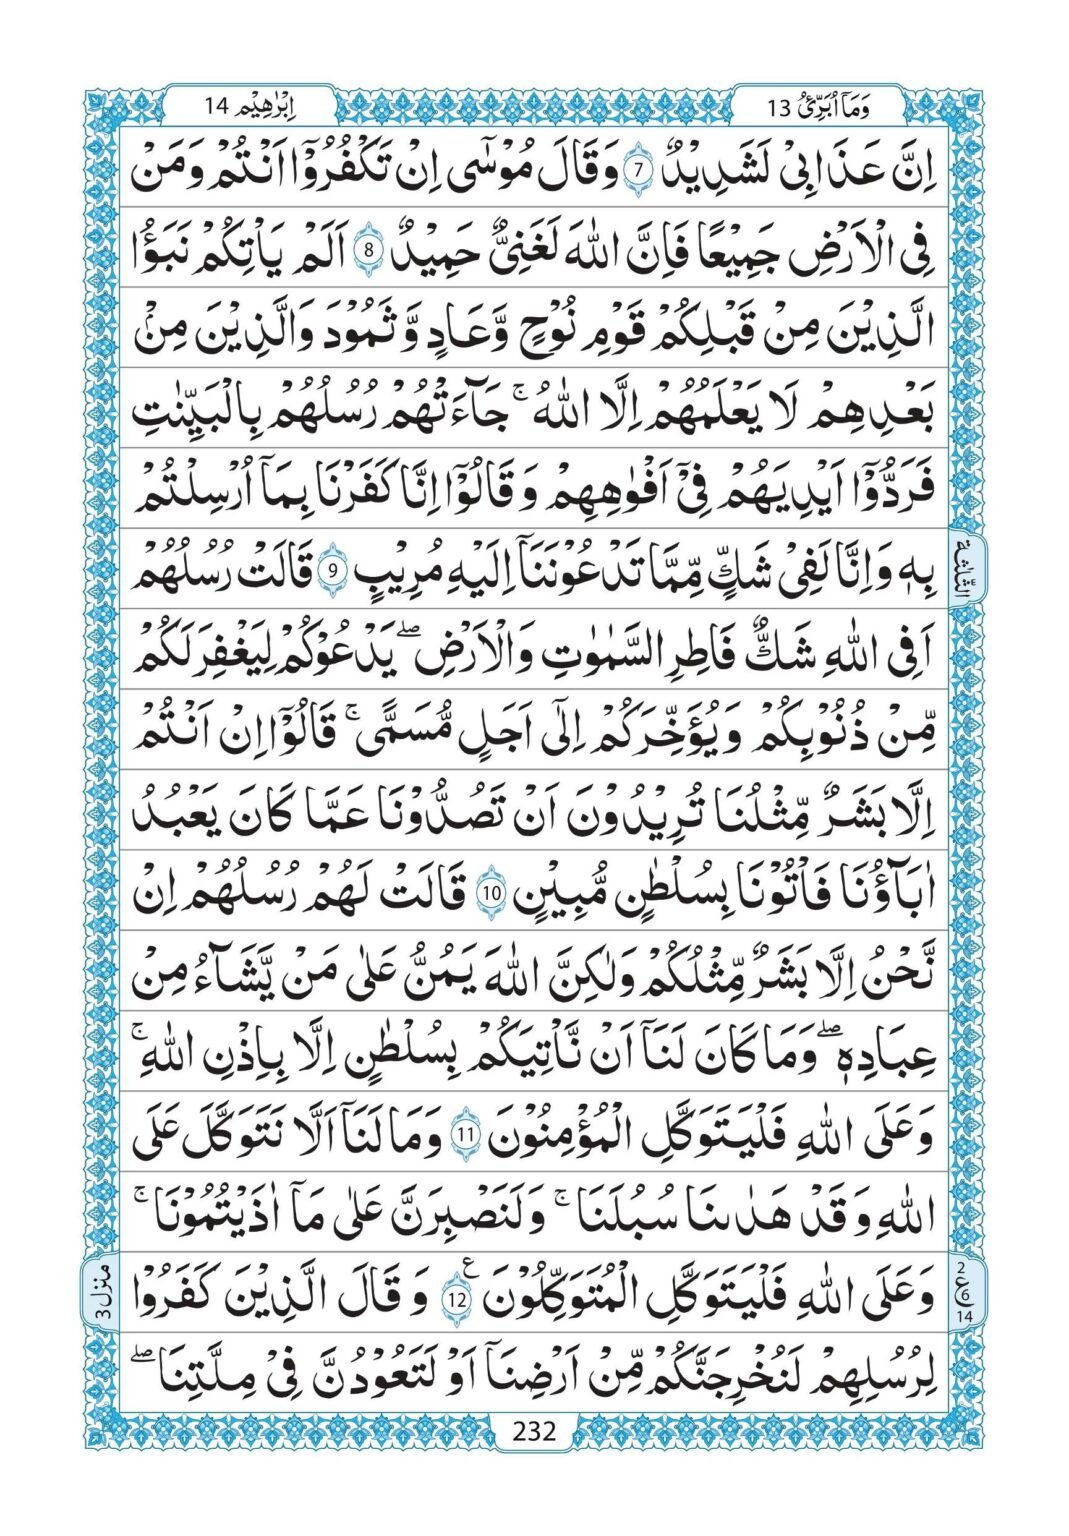 وَمَاۤ اُبَرِّئُ 13
اِبْرٰهِيْم 14
اِنَّ عَذَابِيْ لَشَدِيْدٌ 7 وَقَالَ مُوْسٰۤى اِنْ تَكْفُرُوْۤا اَنْتُمْ وَمَنْ
فِي الْاَرْضِ جَمِيْعًا فَاِنَّ اللّٰهَ لَغَنِيٌّ حَمِيْدٌ 8 اَلَمْ يَاْتِكُمْ نَبَؤُا
الَّذِيْنَ مِنْ قَبْلِكُمْ قَوْمِ نُوْحٍ وَّعَادٍ وَّثَمُوْدَ وَالَّذِيْنَ مِنْۢ
بَعْدِهِمْ لَا يَعْلَمُهُمْ اِلَّا اللّٰهُ ۚ جَآءَتْهُمْ رُسُلُهُمْ بِالْبَيِّنٰتِ
فَرَدُّوْۤا اَيْدِيَهُمْ فِيْۤ اَفْوٰهِهِمْ وَقَالُوْۤا اِنَّا كَفَرْنَا بِمَاۤ اُرْسِلْتُمْ
بِهٖ وَاِنَّا لَفِيْ شَكٍّ مِّمَّا تَدْعُوْنَنَاۤ اِلَيْهِ مُرِيْبٍ 9 قَالَتْ رُسُلُهُمْ
الثّلٰثة
اَفِي اللّٰهِ شَكٌّ فَاطِرِ السَّمٰوٰتِ وَالْاَرْضِ ۖ يَدْعُوْكُمْ لِيَغْفِرَ لَكُمْ
مِّنْ ذُنُوْبِكُمْ وَيُؤَخِّرَكُمْ اِلٰۤى اَجَلٍ مُّسَمًّى ۚ قَالُوْۤا اِنْ اَنْتُمْ
اِلَّا بَشَرٌ مِّثْلُنَا تُرِيْدُوْنَ اَنْ تَصُدُّوْنَا عَمَّا كَانَ يَعْبُدُ
اٰبَآؤُنَا فَاْتُوْنَا بِسُلْطٰنٍ مُّبِيْنٍ 10 قَالَتْ لَهُمْ رُسُلُهُمْ اِنْ
نَّحْنُ اِلَّا بَشَرٌ مِّثْلُكُمْ وَلٰكِنَّ اللّٰهَ يَمُنُّ عَلٰى مَنْ يَّشَآءُ مِنْ
عِبَادِهٖ ۖ وَمَا كَانَ لَنَاۤ اَنْ نَّاْتِيَكُمْ بِسُلْطٰنٍ اِلَّا بِاِذْنِ اللّٰهِ ۚ
وَعَلَى اللّٰهِ فَلْيَتَوَكَّلِ الْمُؤْمِنُوْنَ 11 وَمَا لَنَاۤ اَلَّا نَتَوَكَّلَ عَلَى
اللّٰهِ وَقَدْ هَدٰىنَا سُبُلَنَا ۚ وَلَنَصْبِرَنَّ عَلٰى مَاۤ اٰذَيْتُمُوْنَا ۚ
وَعَلَى اللّٰهِ فَلْيَتَوَكَّلِ الْمُتَوَكِّلُوْنَ 12 ع وَقَالَ الَّذِيْنَ كَفَرُوْا
2 ع 6 14
منزل 3
لِرُسُلِهِمْ لَنُخْرِجَنَّكُمْ مِّنْ اَرْضِنَاۤ اَوْ لَتَعُوْدُنَّ فِيْ مِلَّتِنَا ۖ
232